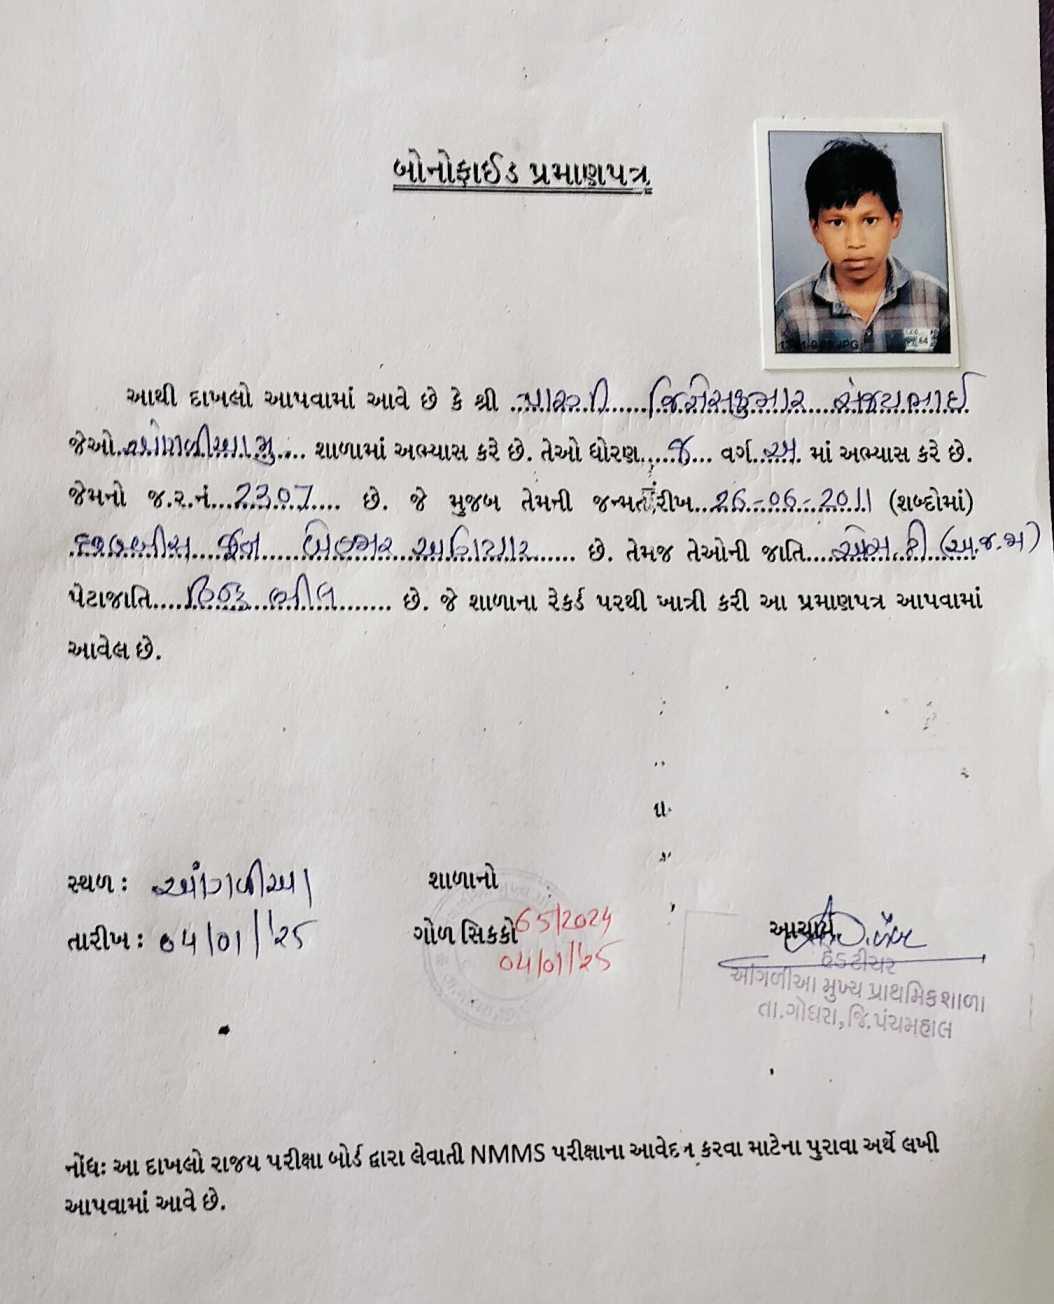 બોનોફાઈડ પ્રમાણપત્ર
આથી દાખલો આપવામાં આવે છે કે શ્રી ..પારગી......જિગ્નેસકુમાર....સંજયભાઈ
જેઓ..આંગળીયા.મુ.... શાળામાં અભ્યાસ કરે છે. તેઓ ધોરણ....8... વર્ગ..અ.. માં અભ્યાસ કરે છે.
જેમનો જ.ર.નં...2307.... છે. જે મુજબ તેમની જન્મતારીખ..26-06-2011 (શબ્દોમાં)
છવ્વીસ....જુન.....બેહજાર..અગિયાર...... છે. તેમજ તેઓની જાતિ....એસ.ટી (અ.જ.જા)
પેટાજાતિ.....હિન્દુ...ભીલ........ છે. જે શાળાના રેકર્ડ પરથી ખાત્રી કરી આ પ્રમાણપત્ર આપવામાં
આવેલ છે.
સ્થળ : આંગળીયા
શાળાનો
તારીખ : 04/01/'25
ગોળ સિક્કો 65/2024
04/01/'25
આચાર્ય
હેડટીચર
આંગળીઆ મુખ્ય પ્રાથમિક શાળા
તા.ગોધરા, જિ.પંચમહાલ
નોંધઃ આ દાખલો રાજય પરીક્ષા બોર્ડ દ્વારા લેવાતી NMMS પરીક્ષાના આવેદન કરવા માટેના પુરાવા અર્થે લખી
આપવામાં આવે છે.